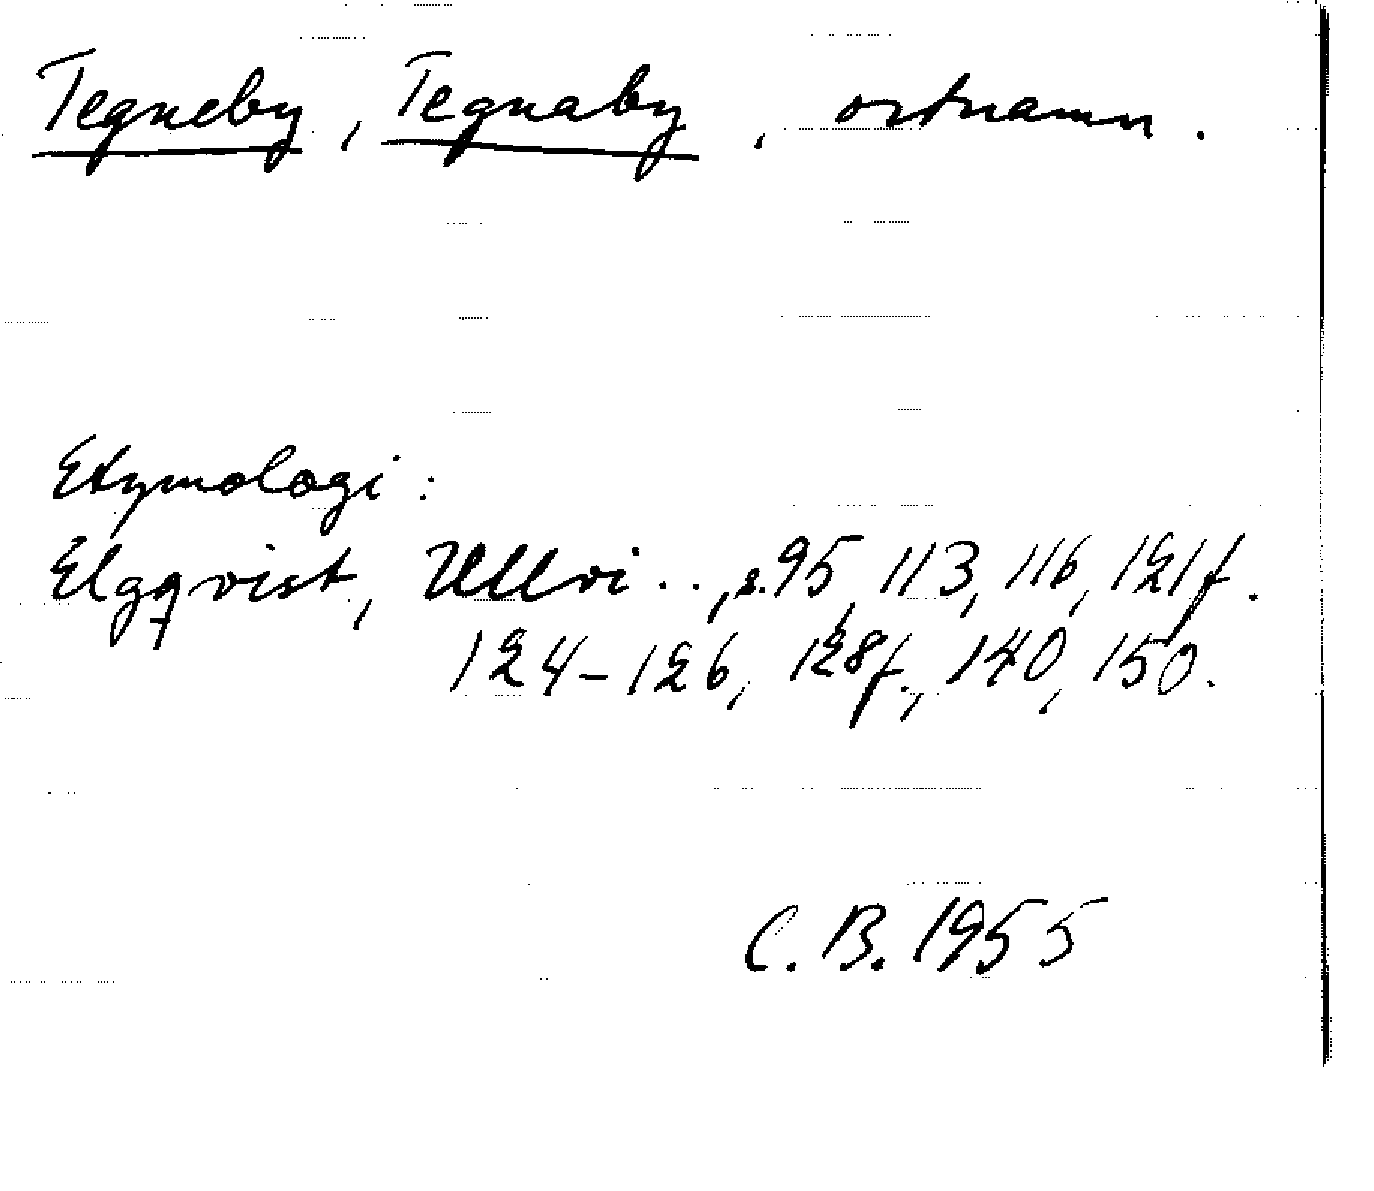 Tegneby, Tegnaby, ortnamn.
Etymologi:
Elgqvist, Ullvi.., s. 95, 113, 116, 121 f.
124-126, 128 f., 140, 150.
C. B. 1955